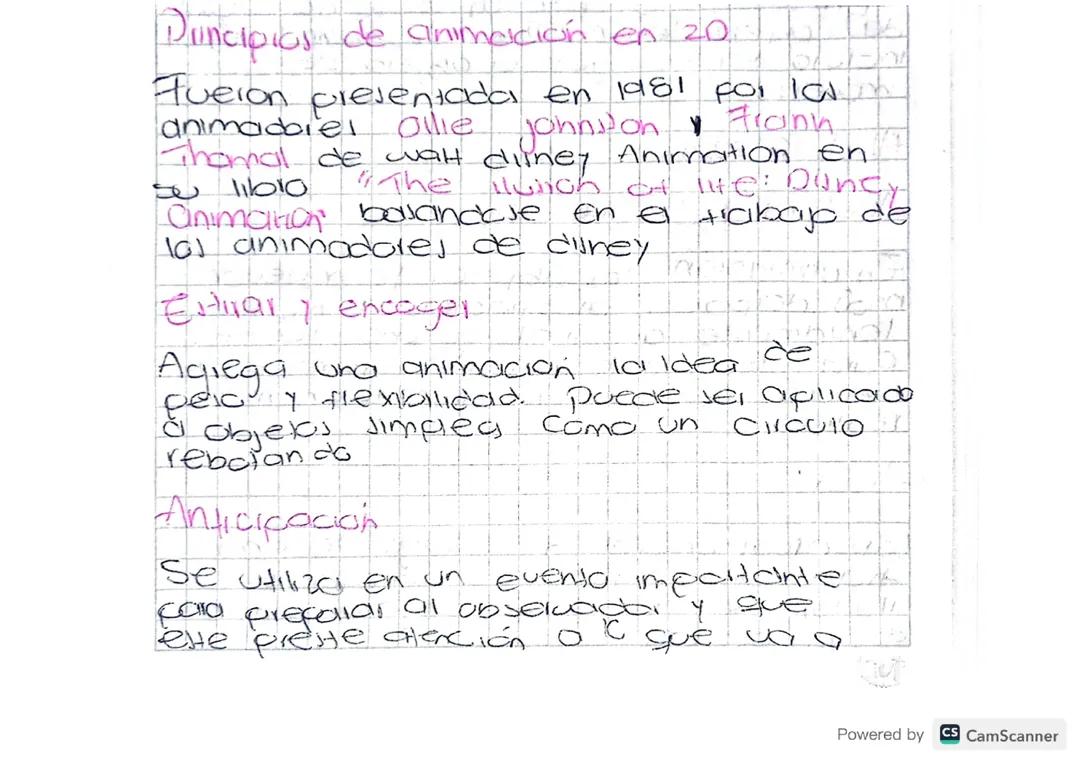 Principios de animación en 2D
Fueron presentados en 1981 por los
animadores Ollie Johnston y Frank
Thomas de Walt disney Animation en
su libro "The Ilusion of life: Disney
animation" basandose en el trabajo de
los animadores de disney
Estirar y encoger
Agrega una animación la idea de
peso y flexibilidad. Puede ser aplicado
a objetos simples como un circulo
rebotando
Anticipación
Se utiliza en un evento importante
para preparar al observador y que
este preste atención a lo que va a
Powered by CS CamScanner